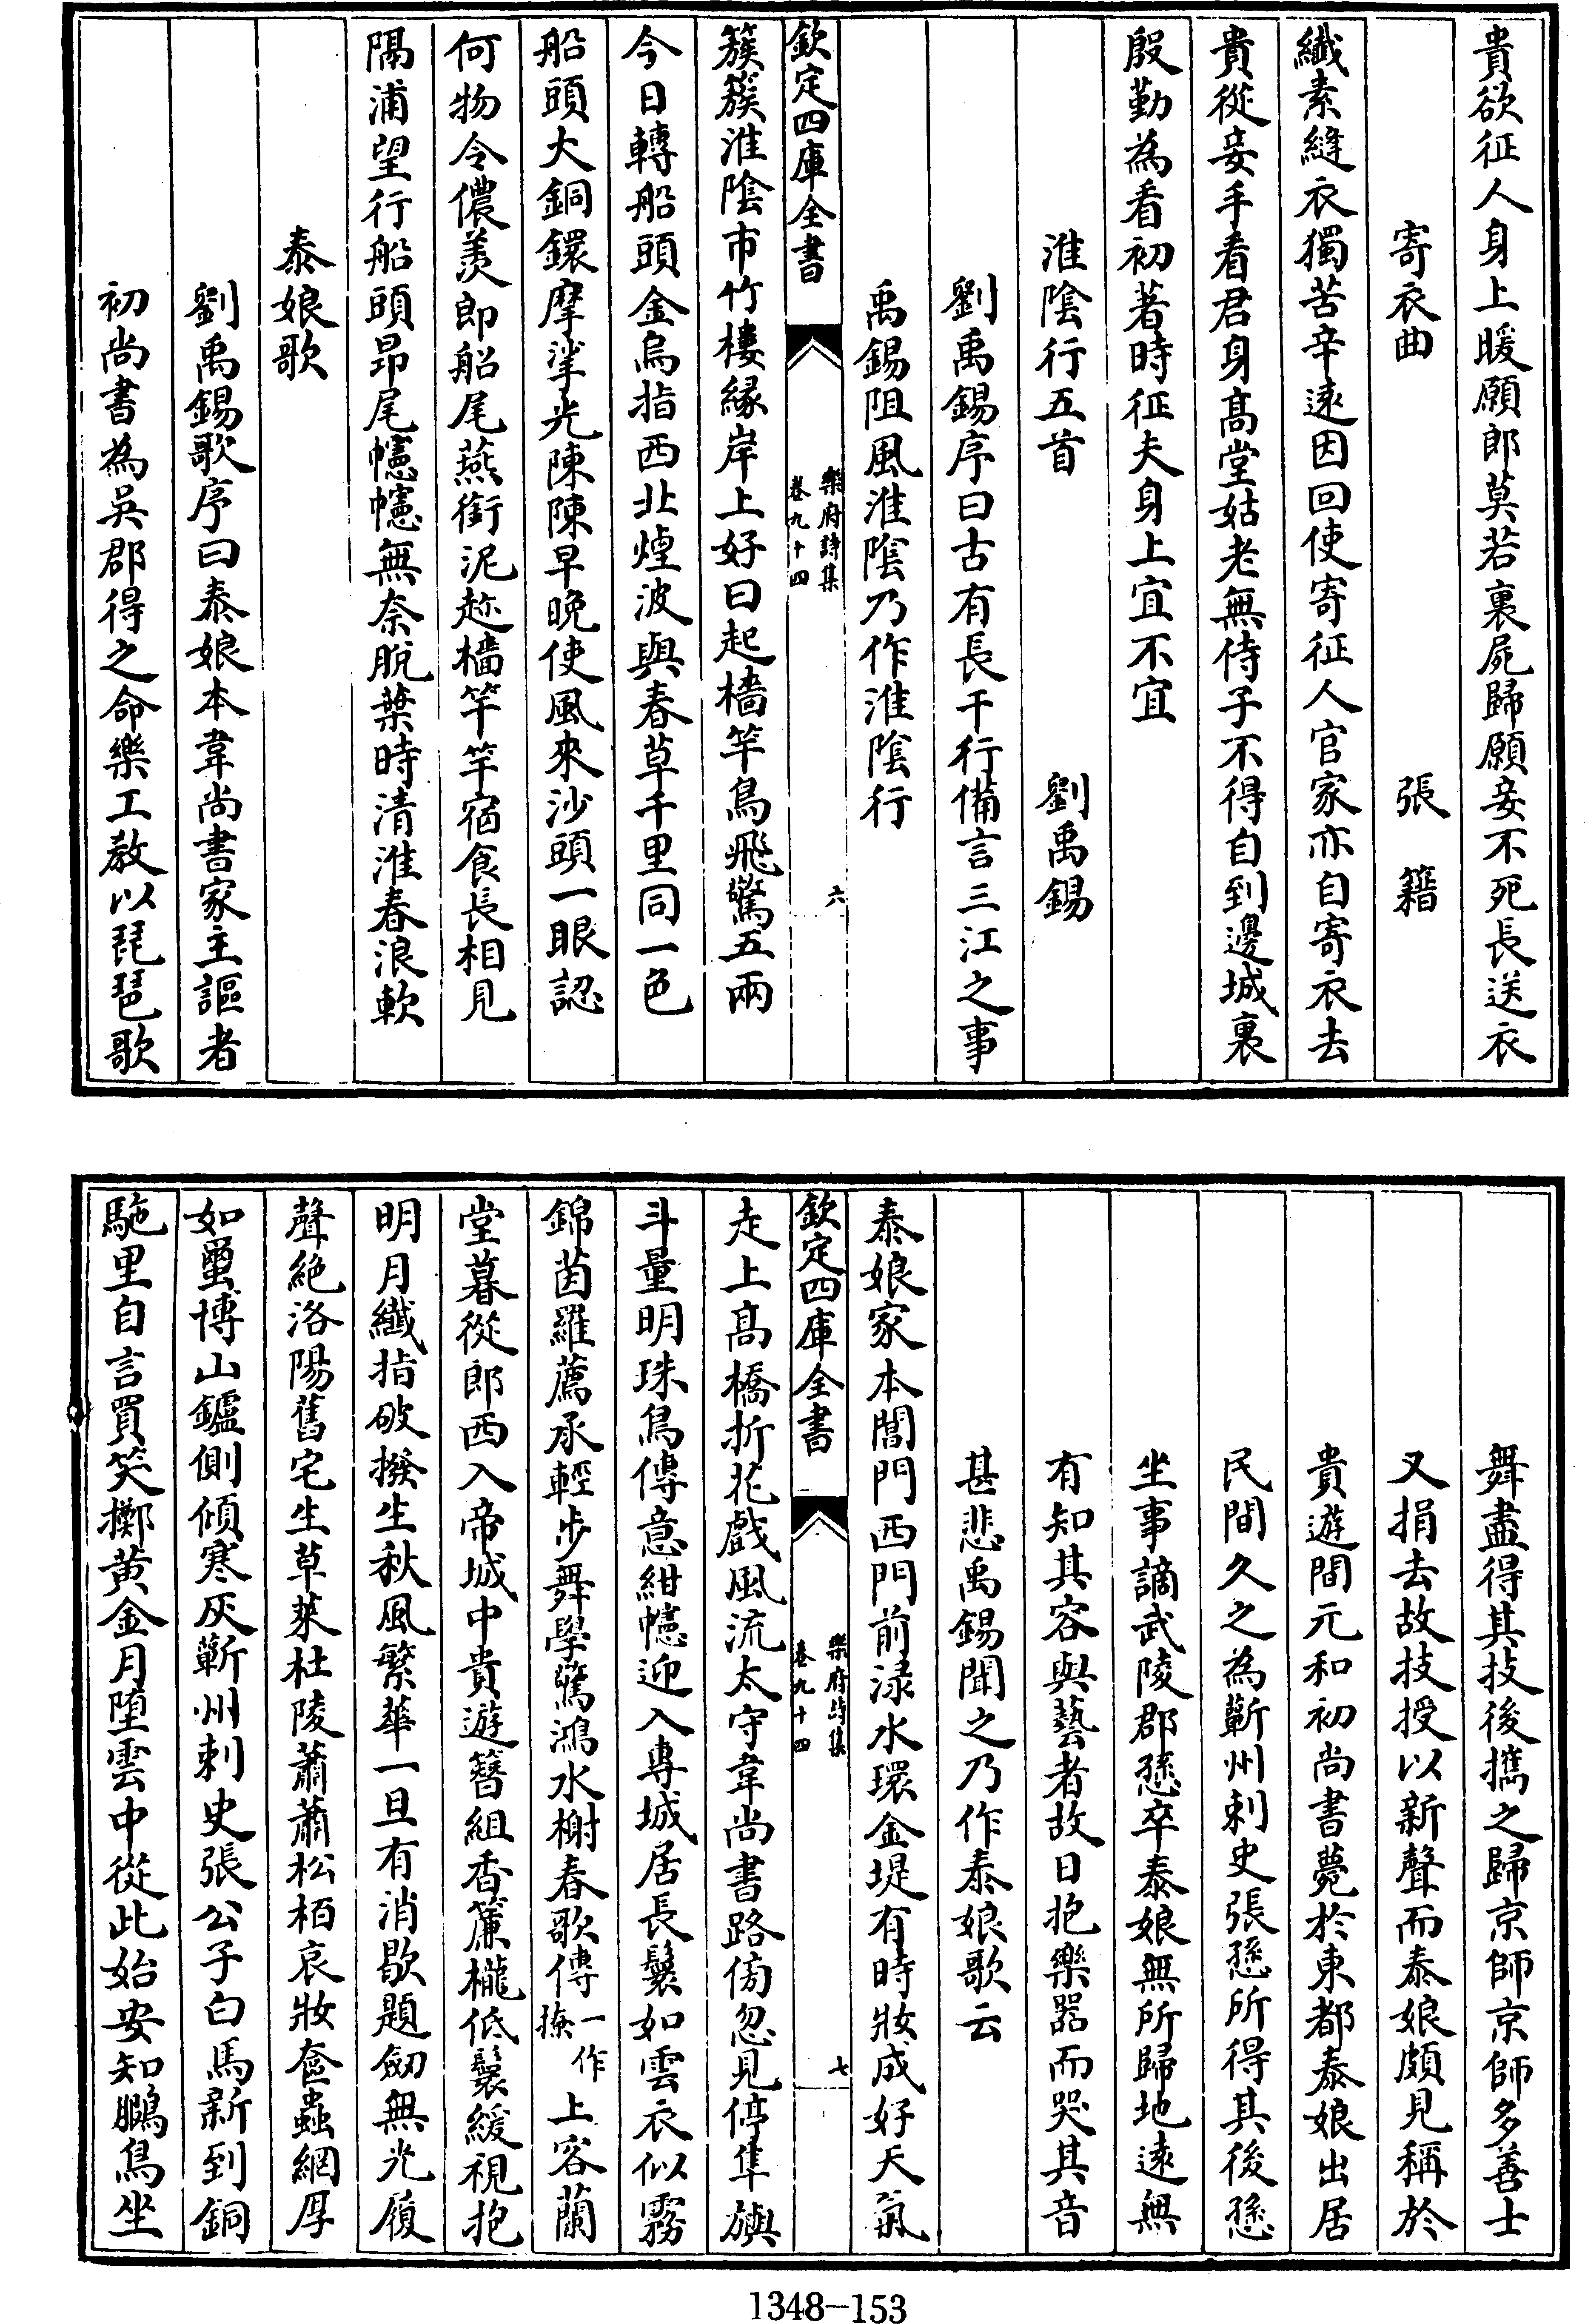 貴欲征人身上暖願郎莫若裏屍歸願妾不死長送衣
寄衣曲　張籍
纎素縫衣獨苦辛遠因回使寄征人官家亦自寄衣去
貴從妾手看君身髙堂姑老無侍子不得自到邊城裏
殷勤為看初著時征夫身上宜不宜
淮陰行五首　劉禹錫
劉禹錫序曰古有長干行備言三江之事
禹錫阻風淮隂乃作淮隂行
欽定四庫全書
樂府詩集
卷九十四
六
簇簇淮隂市竹樓縁岸上好日起檣竿烏飛驚五兩
今日轉船頭金烏指西北煙波與春草千里同一色
船頭大銅鐶摩挲光陳陳早晚使風來沙頭一眼認
何物令儂羨羨郎船尾燕銜泥趂檣竿宿食長相見
隔浦望行船頭昂尾幰幰無奈脫葉時清淮春浪軟
泰娘歌
劉禹錫歌序曰泰娘本韋尚書家主謳者
初尚書為吳郡得之命樂工教以琵琶歌
舞盡得其技後攜之歸京師京師多善士
又捐去故技授以新聲而泰娘頗見稱於
貴遊間元和初尚書薨於東都泰娘出居
民間久之為蘄州刺史張愻所得其後愻
坐事謫武陵郡愻卒泰娘無所歸地遠無
有知其容與藝者故日抱樂器而哭其音
甚悲禹錫聞之乃作泰娘歌云
泰娘家本閶門西門前渌水環金堤有時妝成好天氣
欽定四庫全書
樂府詩集
卷九十四
七
走上髙橋折花戲風流太守韋尚書路傍忽見停隼旟
斗量明珠鳥傳意紺幰迎入專城居長鬟如雲衣似霧
錦茵羅薦承輕步舞學驚鴻水榭春歌傳一作撩上客蘭
堂暮從郎西入帝城中貴遊簪組香簾櫳低鬟緩視抱
明月纖指破撥生秋風繁華一旦有消歇題劒無光履
聲絶洛陽舊宅生草萊杜陵蕭蕭松栢哀妝奩蟲網厚
如蠒博山鑪側傾寒灰蘄州刺史張公子白馬新到銅
駞里自言買笑擲黄金月墮雲中從此始安知鵩鳥坐
1348-153